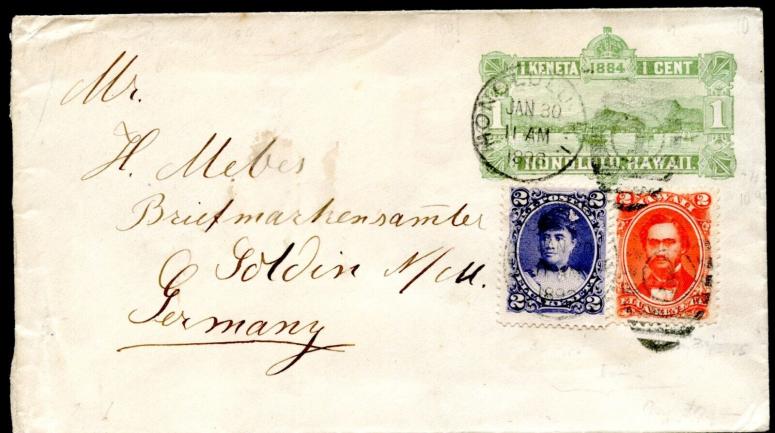 Mr.
H. Mebes
Briefmarkensamler
Soldin N/M.
Germany
1 KENETA 1884 1 CENT
1 1
HONOLULU, HAWAII.
HONOLULU
JAN 30
11 AM
2 2
2 2
2 HAWAII 2
2 2